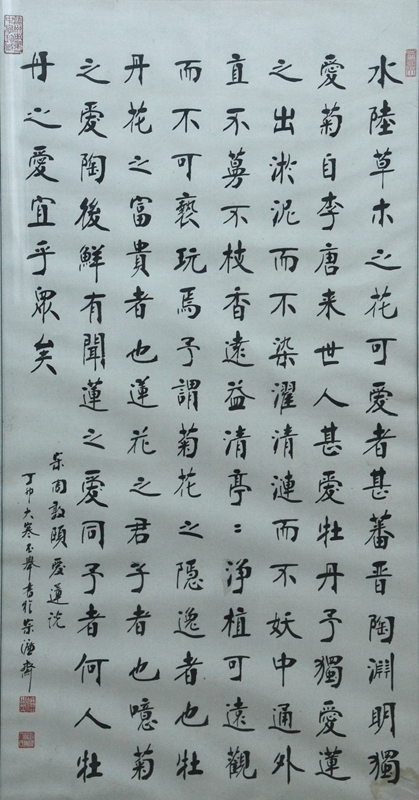 水陸草木之花可愛者甚蕃晋陶淵明獨
愛菊自李唐来世人甚愛牡丹予獨愛蓮
之出淤泥而不染濯清漣而不妖中通外
直不蔓不枝香遠益清亭〻浄植可遠觀
而不可褻玩焉予謂菊花之隱逸者也牡
丹花之富貴者也蓮花之君子者也噫菊
之愛陶後鮮有聞蓮之愛同予者何人牡
丹之愛宜乎眾矣
宋周敦頤愛蓮说
丁卯大寒書於齋